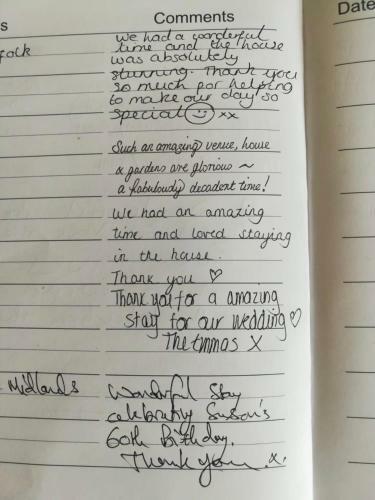 s
Comments
Date
folk
We had a wonderful
time and the house
was absolutely
stunning. Thank you
so much for helping
to make our day so
special ☺ xx
Such an amazing venue, house
& gardens are glorious ~
a fabulously decadent time!
We had an amazing
time and loved staying
in the house.
Thank you ♡
Thank you for a amazing
stay for our wedding ♡
The Emmas X
Midlands
Wonderful Stay
celebrating Susan's
60th Birthday.
Thank you .x.